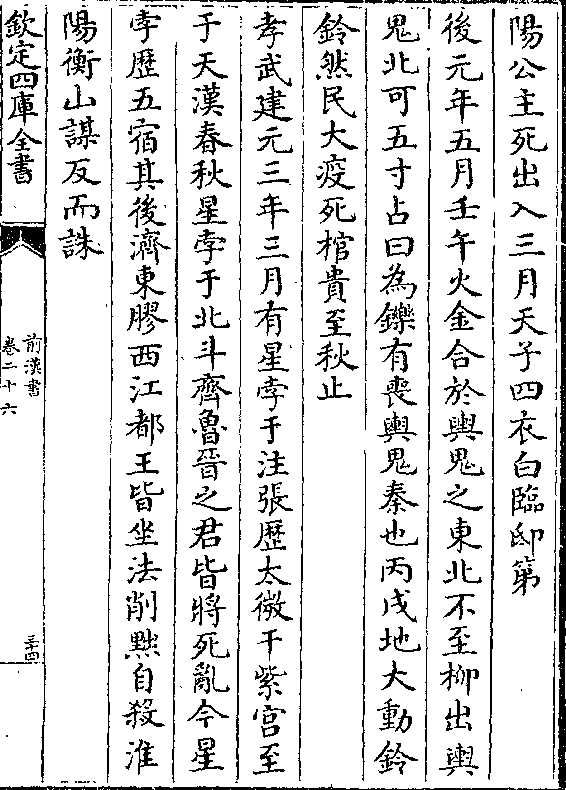 陽公主死出入三月天子四衣白臨邸第
後元年五月壬午火金合於輿鬼之東北不至柳出輿
鬼北可五寸占曰為鑠有喪輿鬼秦也丙戌地大動鈴
鈴然民大疫死棺貴至秋止
孝武建元三年三月有星孛于注張歷太微干紫宮至
于天漢春秋星孛于北斗齊魯晉之君皆將死亂今星
孛歷五宿其後濟東膠西江都王皆坐法削黜自殺淮
陽衡山謀反而誅
欽定四庫全書
前漢書
卷二十六
三十四